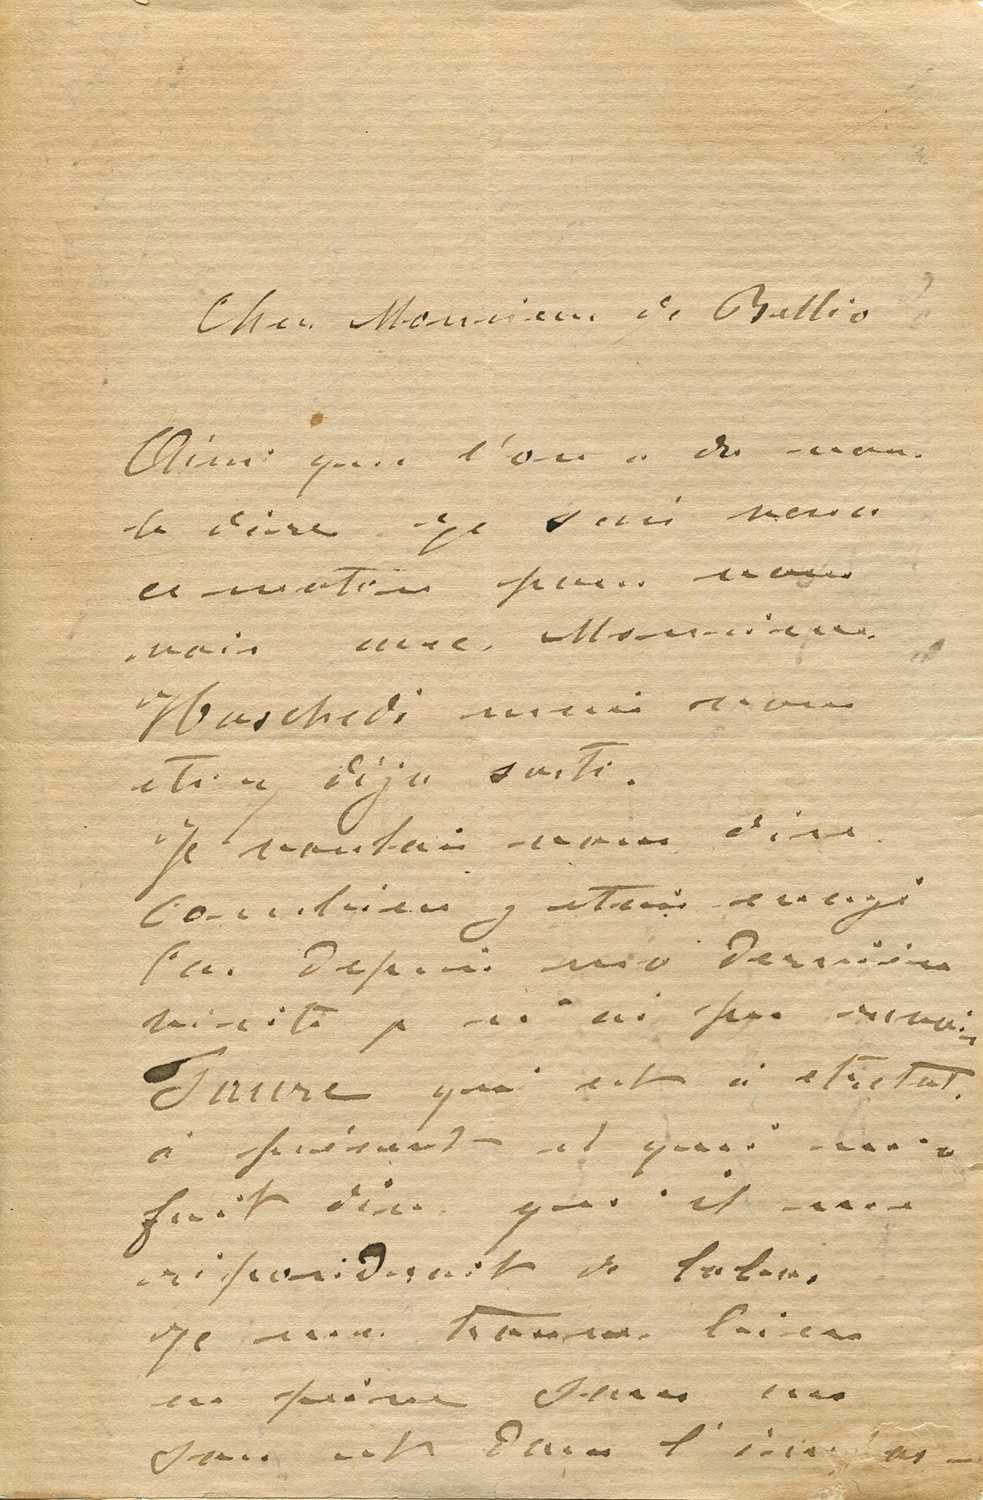 Cher Monsieur de Bellio
Ainsi que l'on a du vous
le dire je suis venu
ce matin pour vous
voir avec Monsieur
Hoschedé mais vous
étiez déja sorti.
Je voulais vous dire
combien j etais
car depuis ma dernière
visite je n'ai pu revoir
Faure qui est à etretat
à présent et qui m'a
fait dire qu'il me
répondrait de là bas.
Je me trouve bien
en peine sans un
sou et dans l'